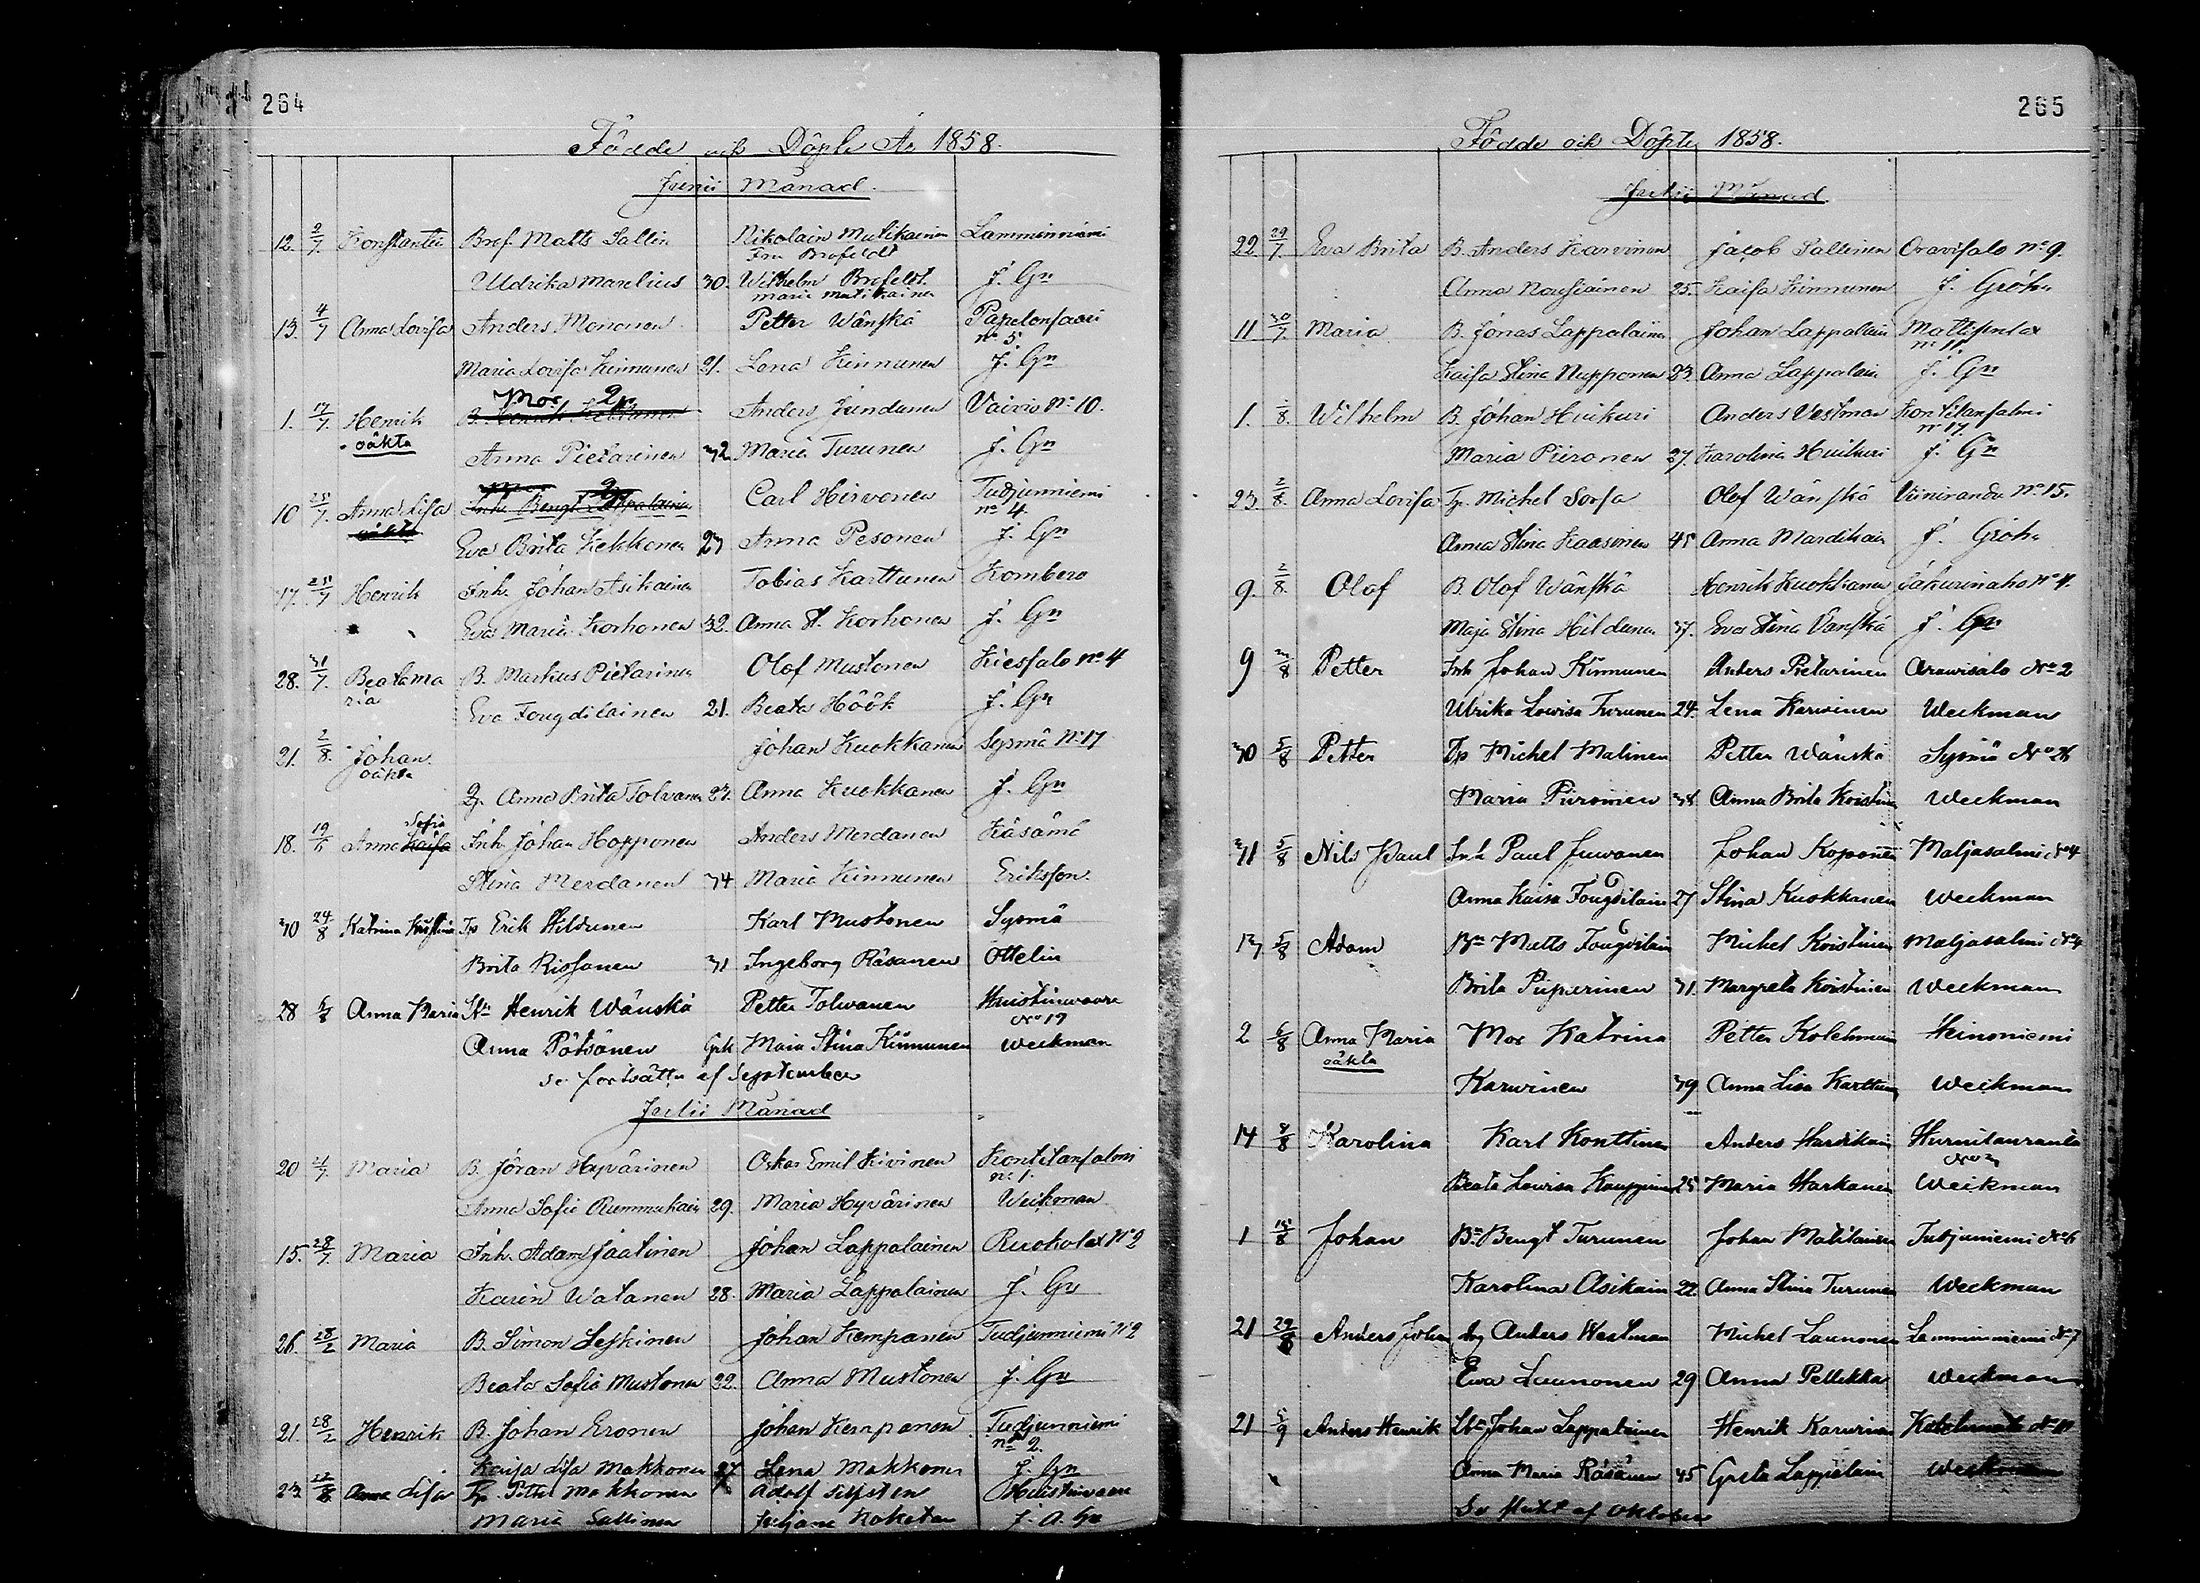 264
Födde och Döpte År 1858.
Junii Månad.
12. 2/7. Konstantin Bref. Matts Sallin Nikolain Mutikainen Lamminniemi
Fru Brofeldt
Uldrika Marelius 30. Wilhelm Brofeldt. J. Gn
Maria Matikainen
13. 4/7 Anna Lovisa Anders Mononen Petter Wänskä Papelonsaari
no 5
Maria Lovisa Kinnunen 21. Lena Kinnunen J. Gn
Mor Qp
1. 17/7. Henrik B. Henrik Anders Jundunen Vaivio No 10.
oäkta
Anna Pietarinen 32 Maria Turunen J. Gn
10 25/7. Anna Lisa Inh. Bengt Lappalainen Carl Hirvonen Tudjunniemi
oäkta no 4
Eva Brita Kekkonen 23 Anna Pesonen J. Gn
17. 25/7 Henrik Inh. Johan Asikainen Tobias Karttunen Kombero
Eva Maria Korhonen 32. Anna St. Korhonen J. Gn
28. 31/7. Beata Ma B. Markus Pietarinen Olof Mustonen Kiessalo no 4
ria
Eva Fougdilainen 21. Beata Höök J. Gn
21. 2/8. Johan Johan Kuokkanen Sysmä No 17
oäkta
Qp Anna Brita Tolvanen 27. Anna Kuokkanen J. Gn
Sofia
18. Anna Kaisa Inh. Johan Hopponen Anders Merdanen Käsämä
Stina Merdanen 34 Maria Kinnunen Eriksson.
30 24/8 Katrina Kristina Tp Erik Hildunen Karl Mustonen Sysmä
Brita Rissanen 31 Ingeborg Räsanen Ottelin
28 6/8 Anna Maria Henrik Wänskä Petter Tolwanen Huistinwaara
No 19
Anna Pötsönen Maia Stina Kinnunen Weckman
se fortsättn af September
Julii Månad
20 21/7. Maria B. Jöran Hyvärinen Oskar Emil Kivinen Kontitansalmi
no 1.
Anna Sofie Rummukain 29. Maria Hyvärinen Weckman
15. 28/7. Maria Inh. Adam Jaatinen Johan Lappalainen Ruokolax No 2
Karin Watanen 28. Maria Lappalainen J. Gn
26. 28/2 Maria B. Simon Leskinen Johan Kempanen Tudjunniemi No 2
Beata Sofia Mustonen 22. Anna Mustonen J. Gn
21. 28/2 Henrik B. Johan Eronen Johan Kempanen Tudjunniemi
no 2.
Kaisa Lisa Makkonen 27 Lena Makkonen J. Gn
23. Anna Lisa Tp. Petter Makkonen Adolf Huistinvaara
Maria Sallinen J. A. Gn
265
Födde och Döpte 1858.
Julii Månad.
22. 29/7. Eva Brita B. Anders Karvinen Jacob Sallinen Oravisalo No 9.
Anna Nousiainen 25. Kaisa Kinnunen J. Gröhn
11 30/7. Maria B. Jonas Lappalainen Johan Lappalain
no 11
Kaisa Stina Nupponen 23 Anna Lappalain J. Gn
1. /8. Wilhelm B. Johan Huikuri Anders Vestman Kontitansalmi
no 17
Maria Piironen 27. Karolina Huikuri J. Gn
23. 2/8. Anna Lovisa Tp. Michel Sorsa Olof Wänskä Viiniranda No 15.
Anna Stina Kaasinen 45 Anna Mardikain J. Gröhn
9. 2/8. Olof B. Olof Wänskä Henrik Kuokkanen Jäkurinaho No 4.
Maja Stina Hildunen 37. Eva Stina Vänskä J. Gn
9 3/8 Petter Inh Johan Kinnunen Anders Pietarinen Arawisalo No 2
Ulrika Lowisa Turunen 24 Lena Karwinen Weckman
30 5/8 Petter Tp Michel Malinen Petter Wänskä Sysmä No 26
Maria Piiroinen 34 Anna Brita Koistinen Weckman
31 5/8 Nils Paul Inh Paul Juwanen Johan Koponen Maljasalmi No 4
Anna Kaisa Fougdilain 27 Stina Kuokkanen Weckman
13 5/8 Adam Bn Matts Fougdilain Michel Koistinen Maljasalmi No 4
Brita Piiparinen 31. Margreta Koistinen Weckman
2 6/8 Anna Maria Mor Katrina Petter Kolehmain Heinoniemi
oäkta
Karwinen 39 Anna Lisa Karttun Weckman
14 8/8 Karolina Karl Konttinen Anders Hardikain Hurnitanranta
No 3
Beata Lowisa Kauppinen 25 Maria Harkanen Weckman
1 15/8 Johan Bn Bengt Turunen Johan Matikainen Tudjuniemi No 6
Karolina Asikain 22 Anna Stina Turunen Weckman
21 29/8 Anders Johan Anders Westman Michel Launonen Lamminniemi No 7
Ewa Launonen 29 Anna Pellikka Weckman
21 5/9 Anders Henrik Johan Lappalainen Henrik Karwinen
Anna Maria Räsänen 45 Greta Lappalain Weckman
Se slutet af Oktober